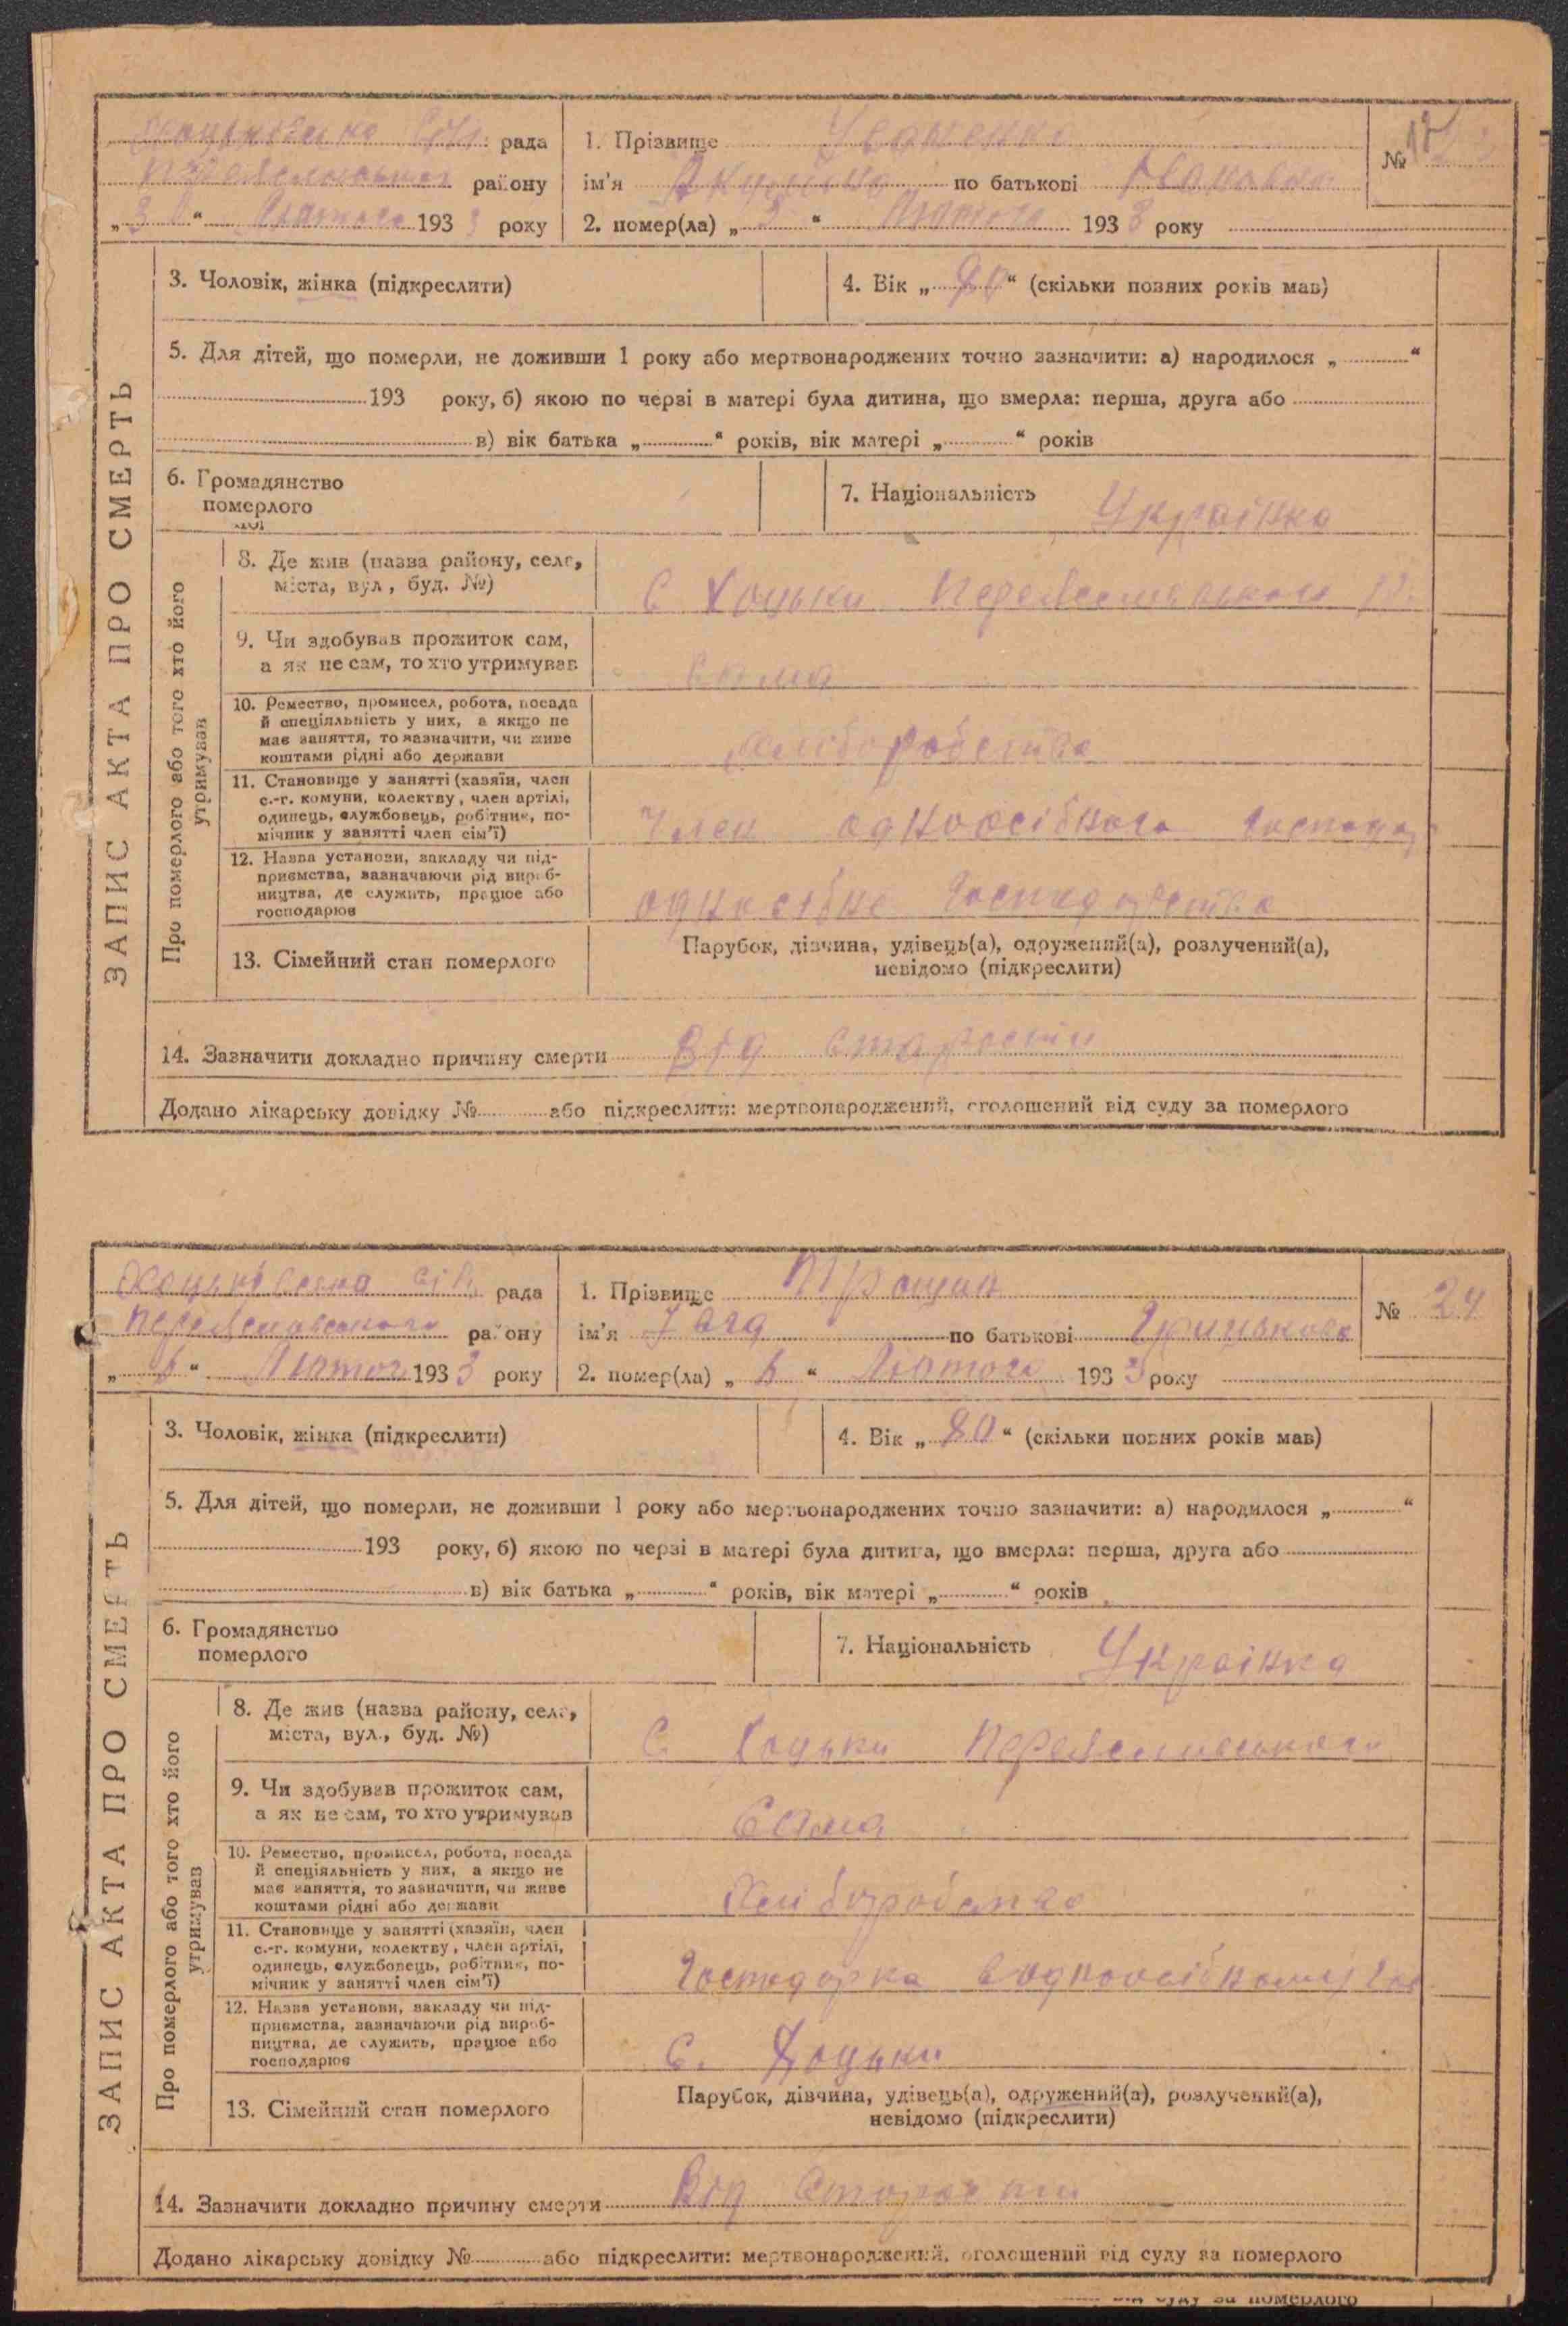 рада
району
" Лютого 193 3 року
1. Прізвище Іваненко
ім'я по батькові
2. помер(ла) „ " Лютого 193 3 року
№
ЗАПИС АКТА ПРО СМЕРТЬ
3. Чоловік, жінка (підкреслити)
4. Вік „ " (скільки повних років мав)
5. Для дітей, що померли, не доживши 1 року або мертвонароджених точно зазначити: а) народилося „ "
193 року, б) якою по черзі в матері була дитина, що вмерла: перша, друга або
в) вік батька „ " років, вік матері „ " років
6. Громадянство
померлого
7. Національність Українка
Про померлого або того хто його
утримував
8. Де жив (назва району, села,
міста, вул., буд. №)
С Хоцьки
9. Чи здобував прожиток сам,
а як не сам, то хто утримував
Сама
10. Ремество, промисел, робота, посада
й спеціяльність у них, а якщо не
має заняття, то зазначити, чи живе
коштами рідні або держави
хліборобство
11. Становище у занятті (хазяїн, член
с.-г. комуни, колектву, член артілі,
одинець, службовець, робітник, по-
мічник у занятті член сім'ї)
Член одноосібного господ
12. Назва установи, закладу чи під-
приємства, зазначаючи рід вироб-
ництва, де служить, працює або
господарює
13. Сімейний стан померлого
Парубок, дівчина, удівець(а), одружений(а), розлучений(а),
невідомо (підкреслити)
14. Зазначити докладно причину смерти Від старости
Додано лікарську довідку № або підкреслити: мертвонароджений, оголошений від суду за померлого
рада
району
„ 6 " 193 3 року
1. Прізвище Трощин
ім'я по батькові
2. помер(ла) „ 6 " Лютого 193 3 року
№ 24
ЗАПИС АКТА ПРО СМЕРТЬ
3. Чоловік, жінка (підкреслити)
4. Вік „ 80 " (скільки повних років мав)
5. Для дітей, що померли, не доживши 1 року або мертвонароджених точно зазначити: а) народилося „ "
193 року, б) якою по черзі в матері була дитина, що вмерла: перша, друга або
в) вік батька „ " років, вік матері „ " років
6. Громадянство
померлого
7. Національність Українка
Про померлого або того хто його
утримував
8. Де жив (назва району, села,
міста, вул., буд. №)
С. Хоцьки
9. Чи здобував прожиток сам,
а як не сам, то хто утримував
Сама
10. Ремество, промисел, робота, посада
й спеціяльність у них, а якщо не
має заняття, то зазначити, чи живе
коштами рідні або держави
11. Становище у занятті (хазяїн, член
с.-г. комуни, колектву, член артілі,
одинець, службовець, робітник, по-
мічник у занятті член сім'ї)
Господарка в одноосібному гос
12. Назва установи, закладу чи під-
приємства, зазначаючи рід вироб-
ництва, де служить, працює або
господарює
С. Хоцьки
13. Сімейний стан померлого
Парубок, дівчина, удівець(а), одружений(а), розлучений(а),
невідомо (підкреслити)
14. Зазначити докладно причину смерти Від
Додано лікарську довідку № або підкреслити: мертвонароджений, оголошений від суду за померлого
від суду за померлого